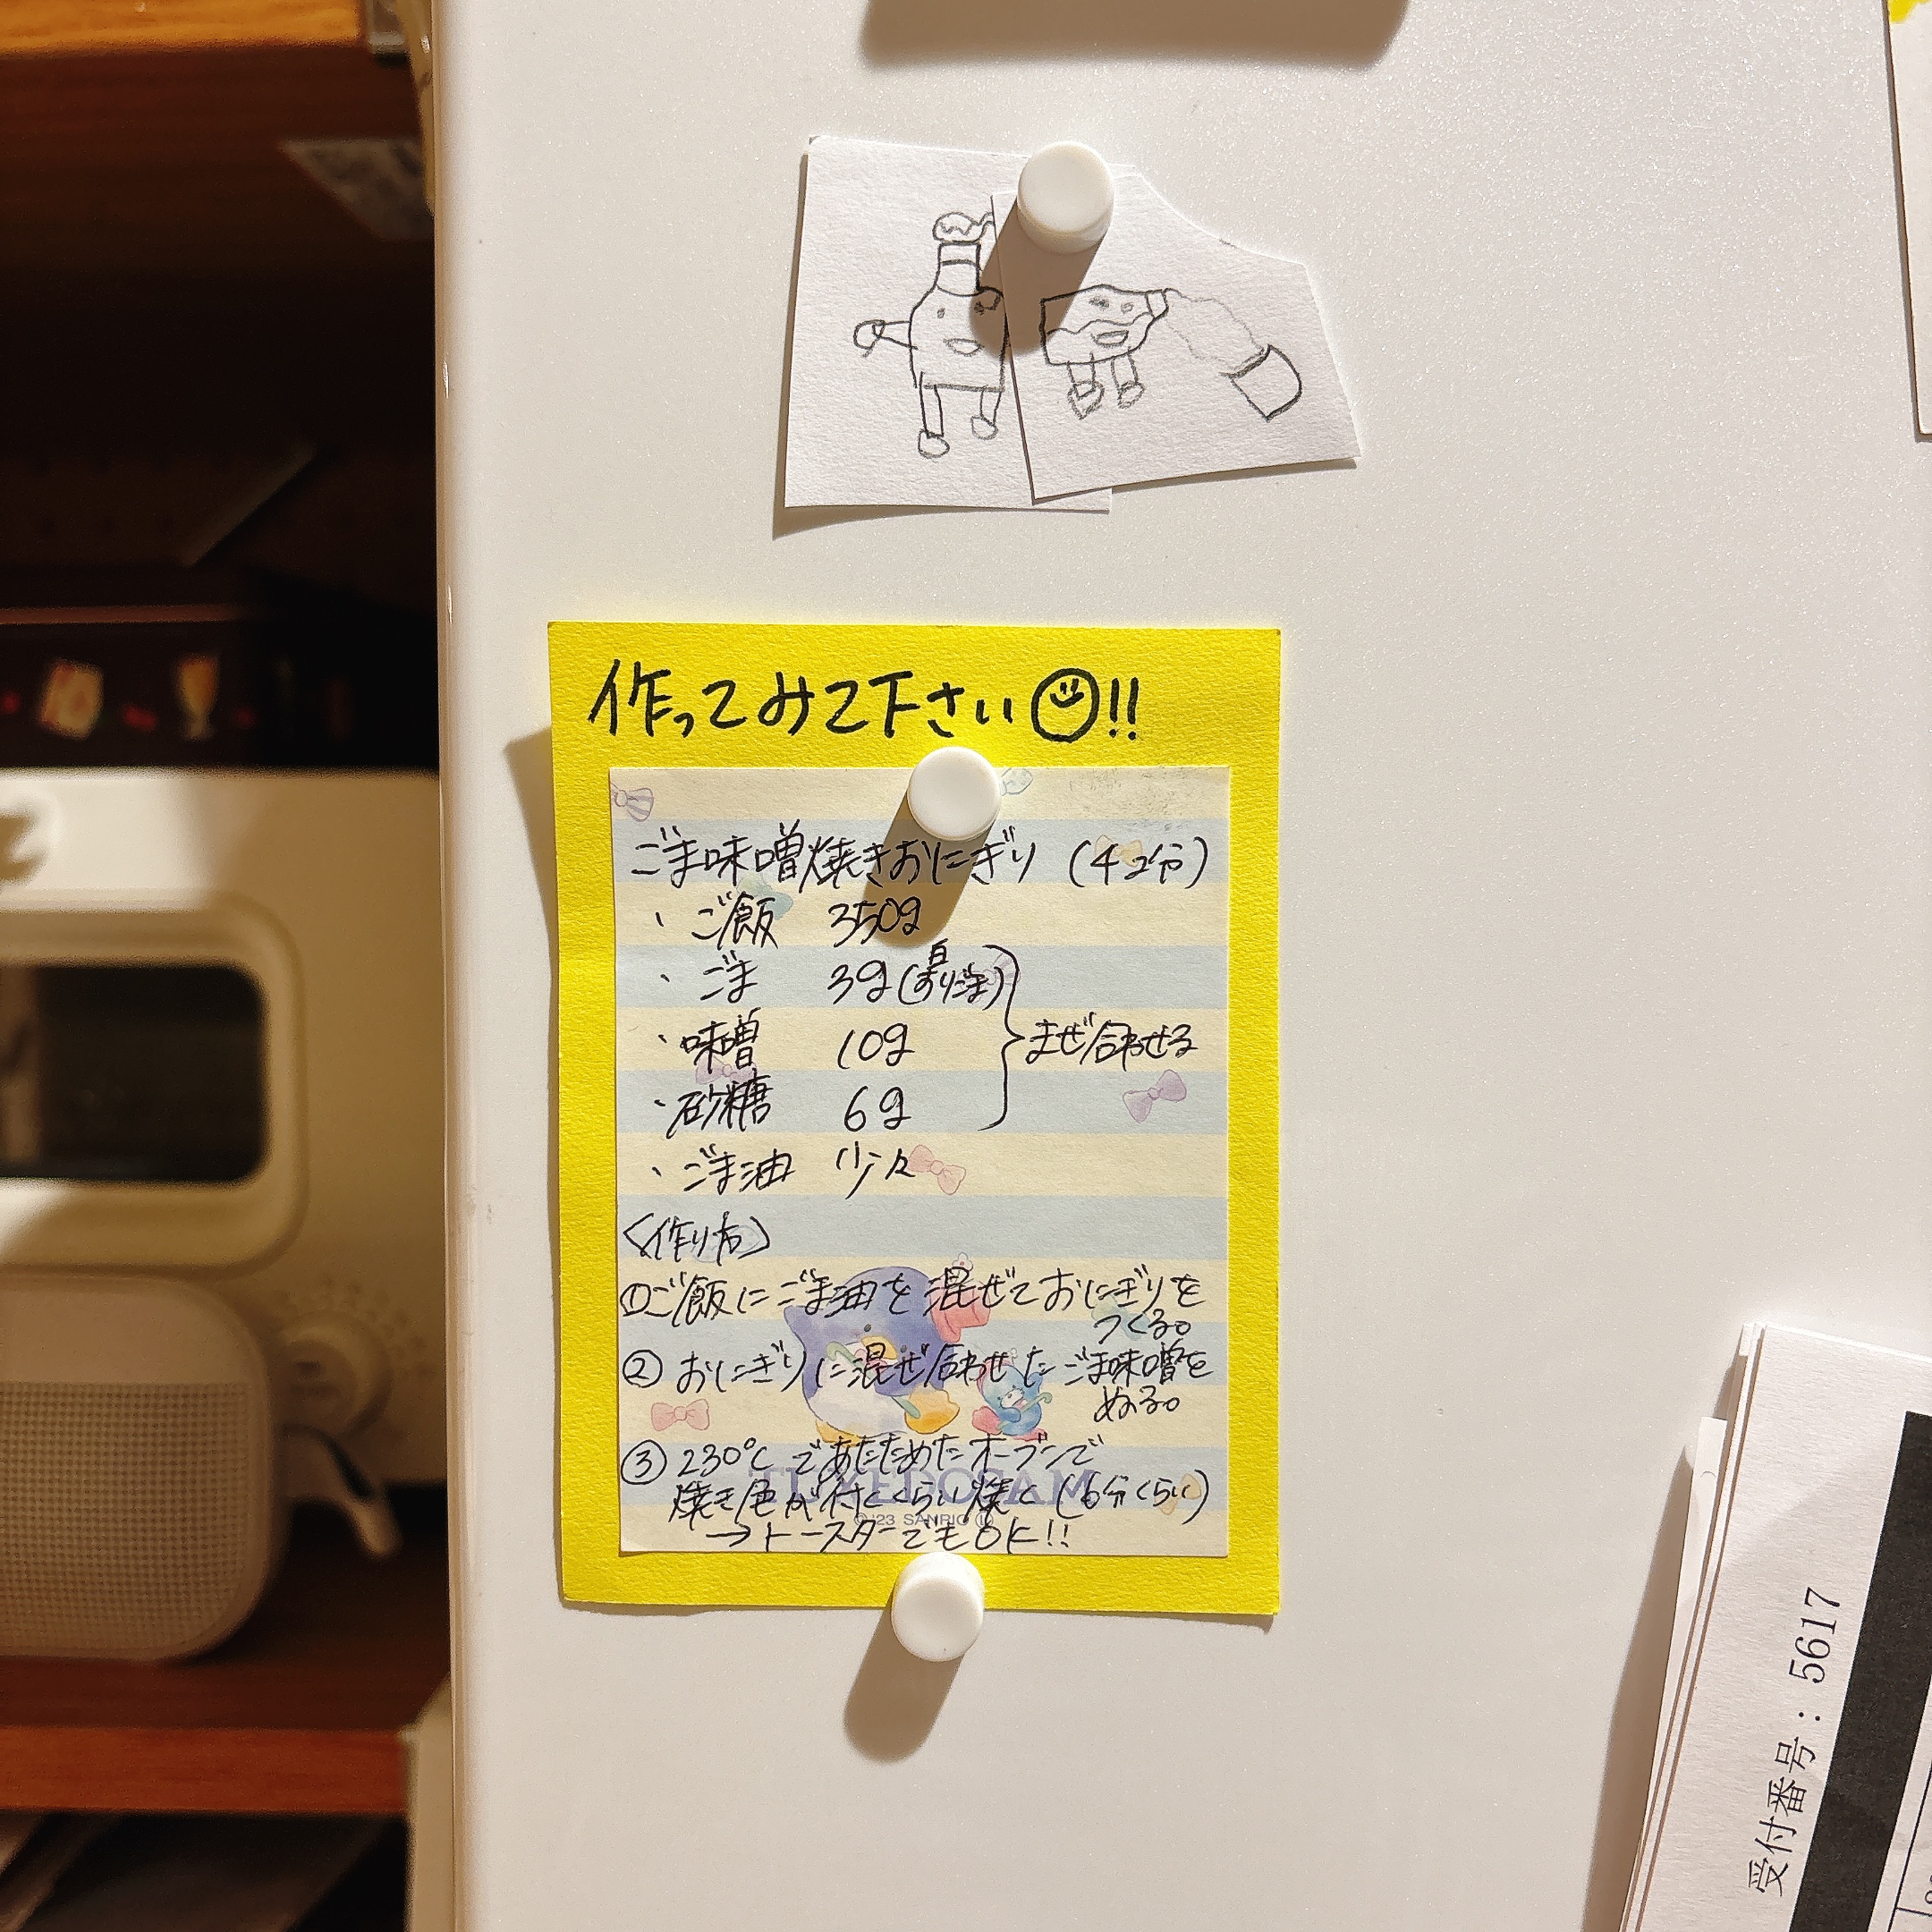 作ってみて下さい!!
ごま味噌焼きおにぎり (4コ分)
・ご飯 350g
・ごま 3g(白すりごま)
・味噌 10g
・砂糖 6g
まぜ合わせる
・ごま油 少々
〈作り方〉
①ご飯にごま油を混ぜておにぎりを
つくる。
②おにぎりに混ぜ合わせたごま味噌を
ぬる。
③230℃であたためたオーブンで
焼き色が付くくらい焼く(6分くらい)
→トースターでもOK!!
TUXEDOSAM
© '23 SANRIO
受付番号：5617